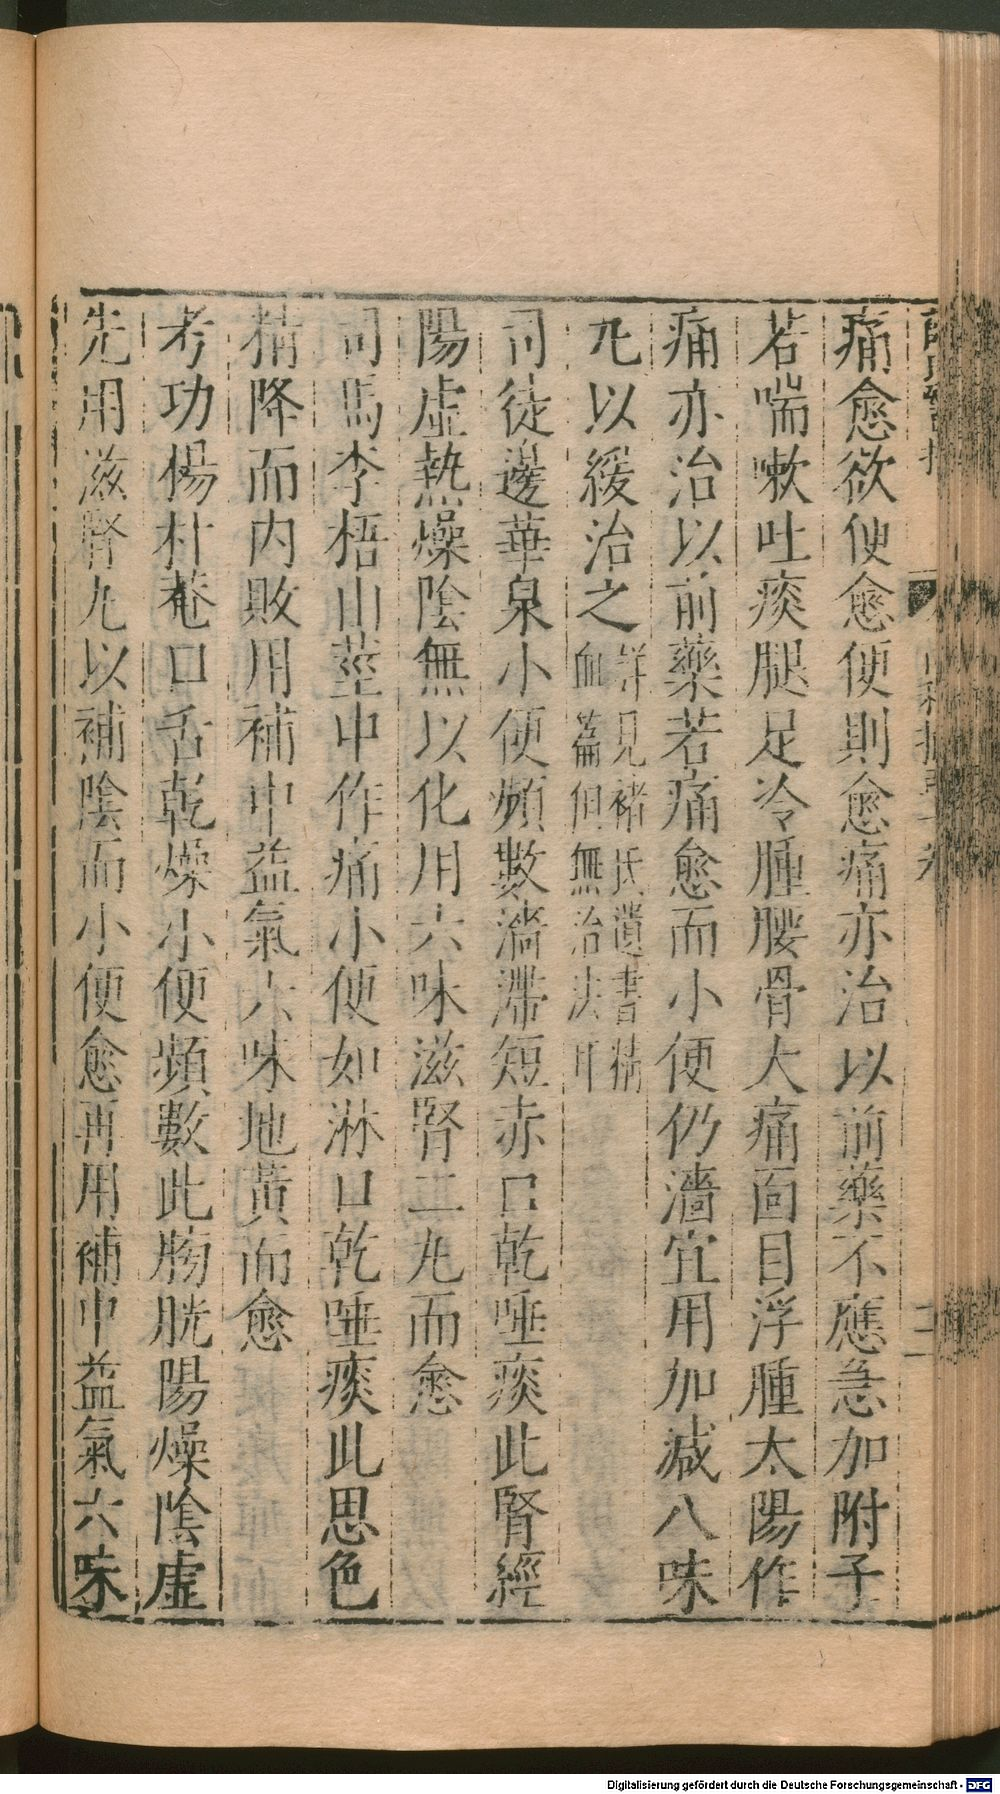 痛愈欲便愈便則愈痛亦治以前藥不應急加附子
若喘嗽吐痰腿足冷腫腰骨大痛面目浮腫太陽作
痛亦治以前藥若痛愈而小便仍濇宜用加減八味
丸以緩治之詳見褚氏遺書精血篇但無治法耳
司徒邊華泉小便頻數滴滯短赤口乾唾痰此腎經
陽虛熱燥陰無以化用六味滋腎二丸而愈
司馬李梧山莖中作痛小便如淋口乾唾痰此思色
精降而内敗用補中益氣六味地黃而愈
考功楊朴菴口舌乾燥小便頻數此膀胱陽燥陰虛
先用滋腎丸以補陰而小便愈再用補中益氣六味
Digitalisierung gefördert durch die Deutsche Forschungsgemeinschaft - DFG